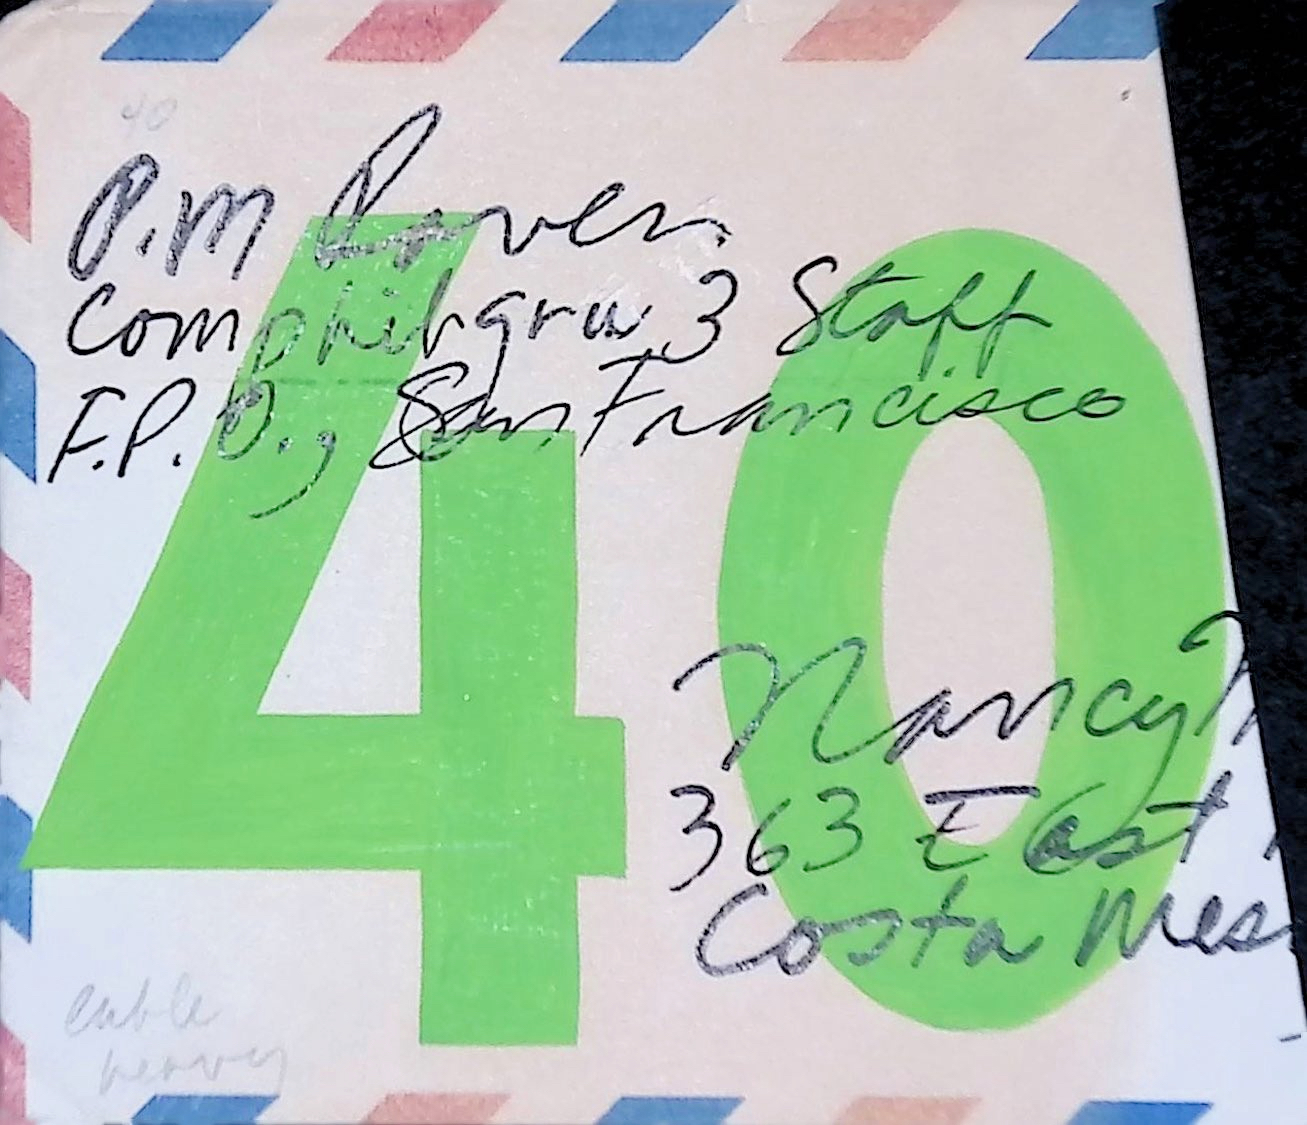 40
P.M Raven
Comphibgru 3 Staff
F.P.O., San Francisco
40
Nancy
363 East
Costa Mes
cable
heavy